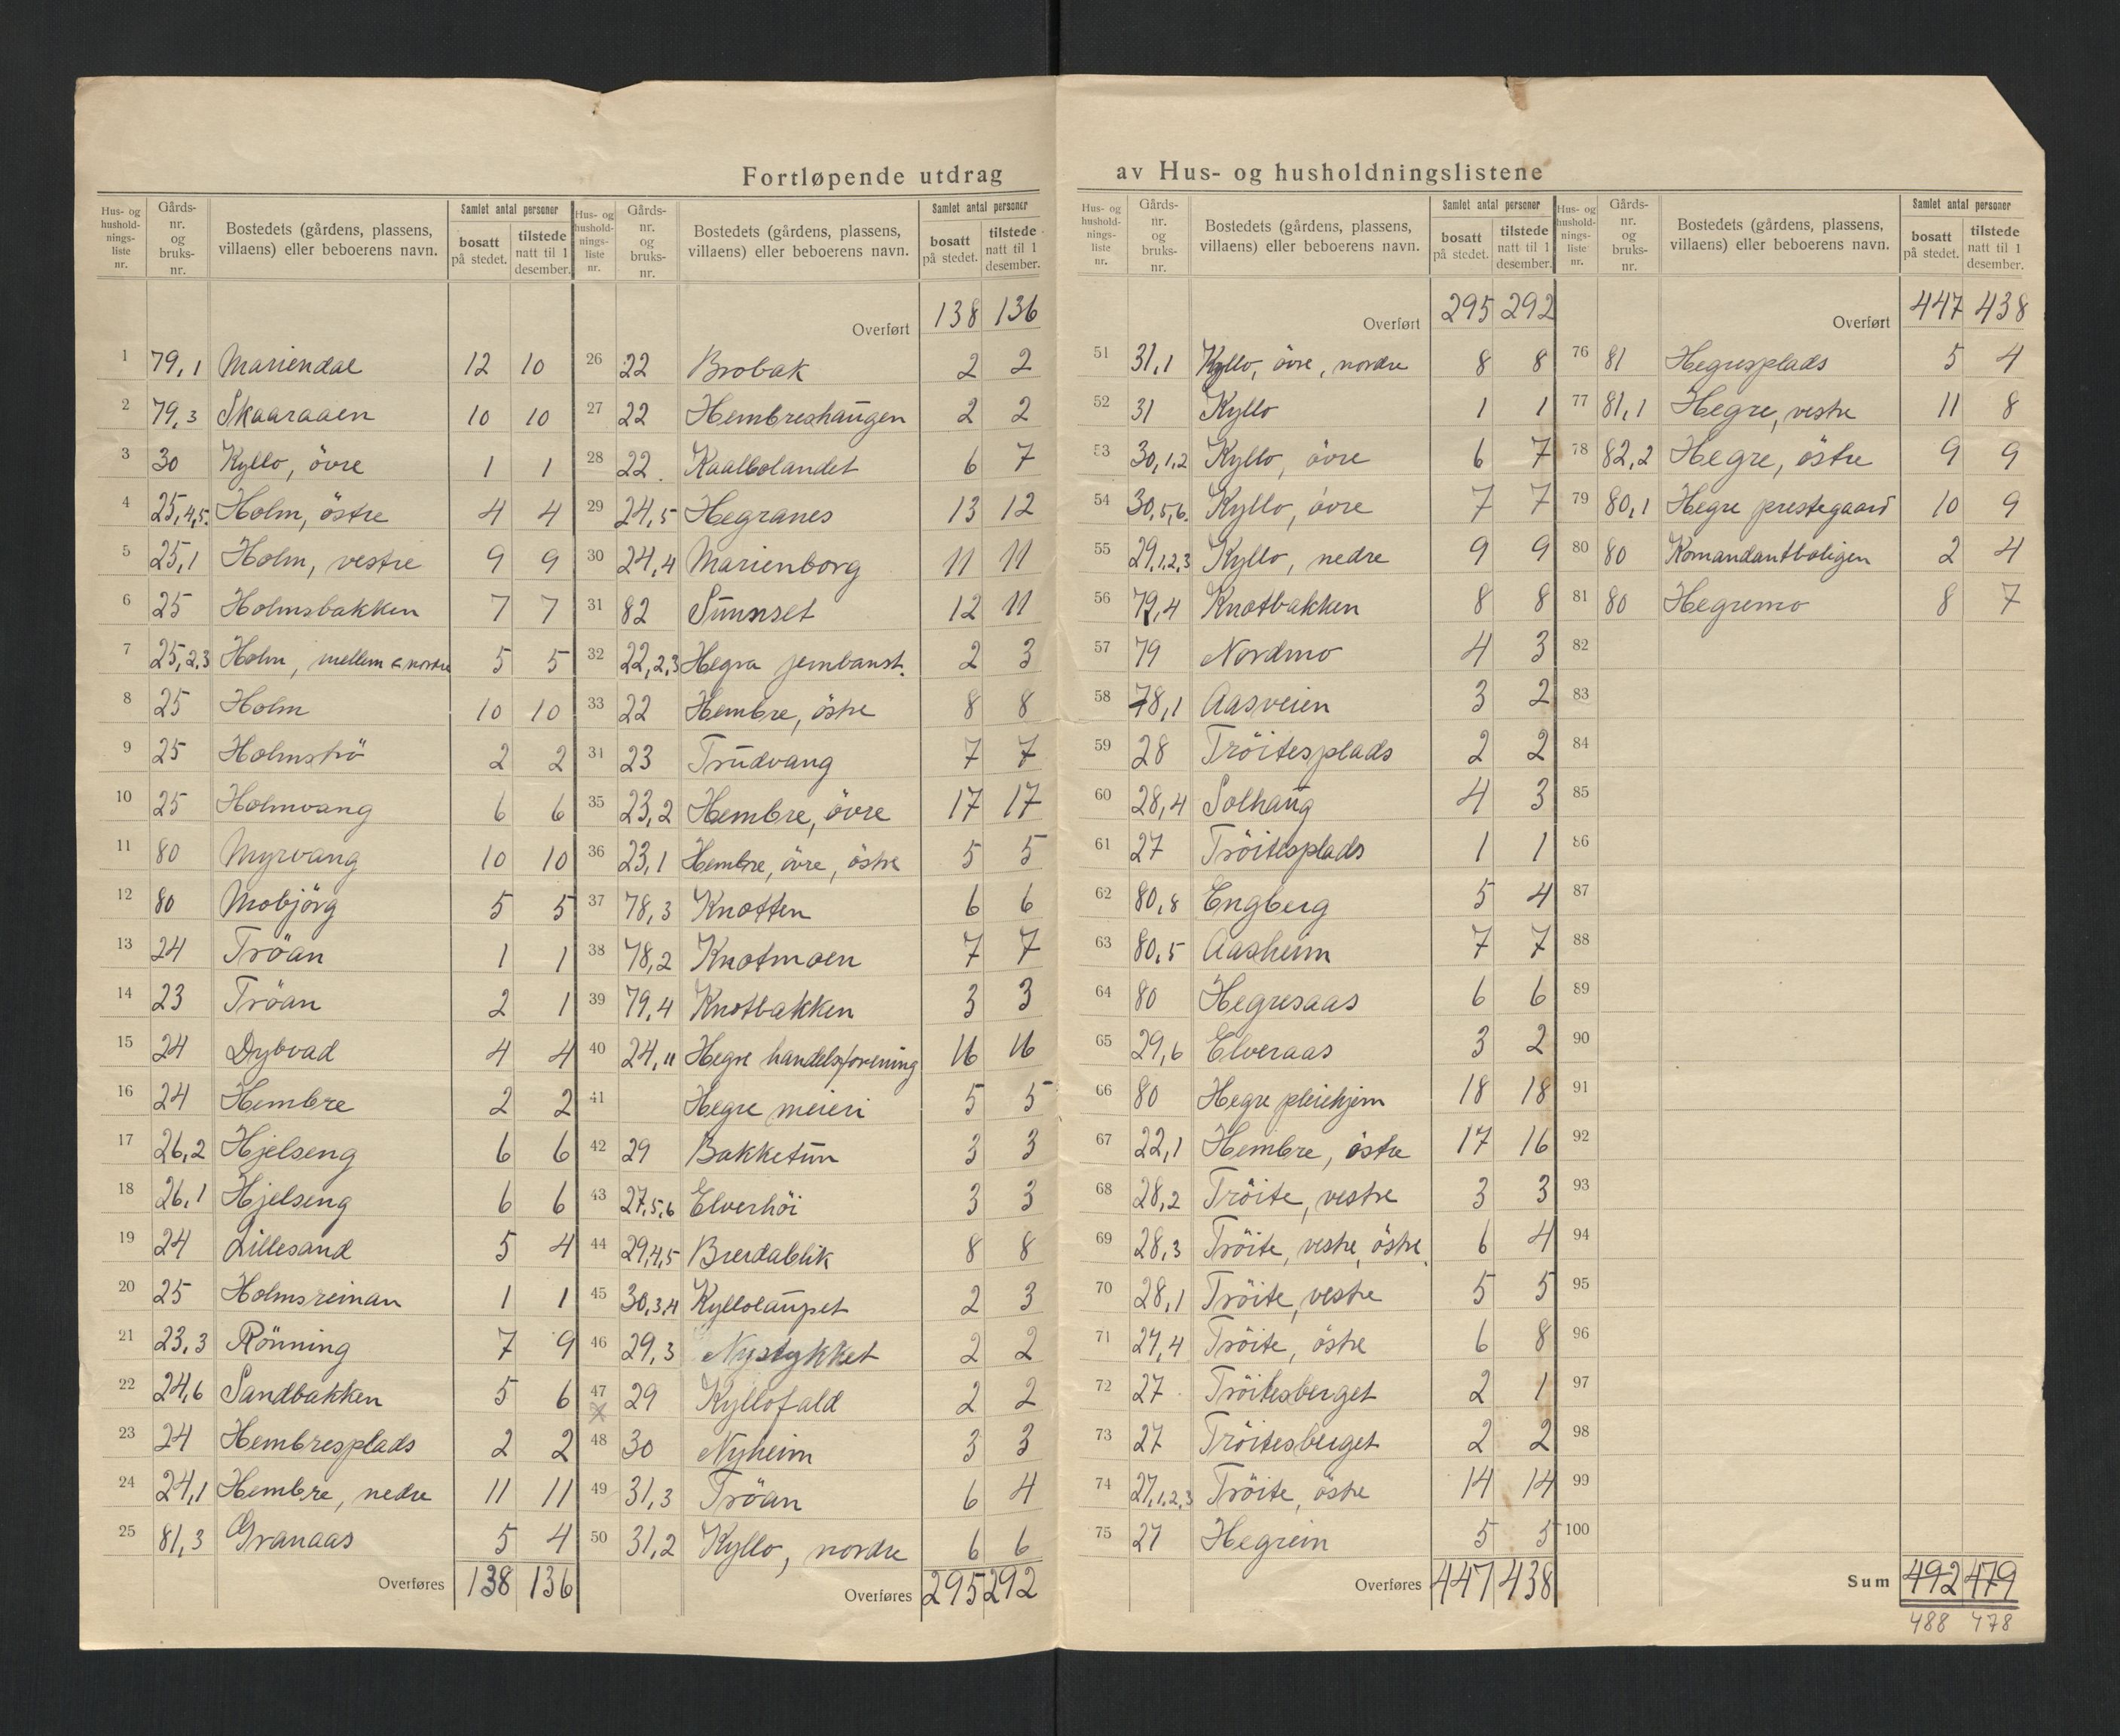 Fortløpende utdrag av Hus- og husholdningslistene
Hus- og hushold-nings-liste nr. Gårds-nr. og bruks-nr. Bostedets (gårdens, plassens, villaens) eller beboerens navn. Samlet antal personer bosatt på stedet. tilstede natt til 1 desember.
1 79,1 Mariendal 12 10
2 79,3 Skaaraaen 10 10
3 30 Kyllo, övre 1 1
4 25,4,5. Holm, östre 4 4
5 25,1 Holm, vestre 9 9
6 25 Holmsbakken 7 7
7 25,2,3 Holm, mellem & nordre 5 5
8 25 Holm 10 10
9 25 Holmströ 2 2
10 25 Holmvang 6 6
11 80 Myrvang 10 10
12 80 Mobjörg 5 5
13 24 Tröan 1 1
14 23 Tröan 2 1
15 24 Dybvad 4 4
16 24 Hembre 2 2
17 26,2 Hjelseng 6 6
18 26,1 Hjelseng 6 6
19 24 Lillesand 5 4
20 25 Holmsreinan 1 1
21 23,3 Rönning 7 9
22 24,6 Sandbakken 5 6
23 24 Hembresplads 2 2
24 24,1 Hembre, nedre 11 11
25 81,3 Granaas 5 4
Overføres 138 136
Hus- og hushold-nings-liste nr. Gårds-nr. og bruks-nr. Bostedets (gårdens, plassens, villaens) eller beboerens navn. Samlet antal personer bosatt på stedet. tilstede natt til 1 desember.
Overført 138 136
26 22 Brobak 2 2
27 22 Hembreshaugen 2 2
28 22. Kaalbolandet 6 7
29 24,5 Hegranes 13 12
30 24,4 Marienborg 11 11
31 82 Sunnset 12 11
32 22,2,3 Hegra jernbanst. 2 3
33 22 Hembre, östre 8 8
31 23 Trudvang 7 7
35 23,2 Hembre, övre 17 17
36 23,1 Hembre, övre, östre 5 5
37 78,3 Knotten 6 6
38 78,2 Knotmoen 7 7
39 79,4 Knotbakken 3 3
40 24,11 Hegre handelsforening 16 16
41 Hegre meieri 5 5
42 29 Bakketun 3 3
43 27,5,6 Elverhöi 3 3
44 29,4,5 Breidablik 8 8
45 30,3,4 Kyllolaupet 2 3
46 29,3 Nystykket 2 2
47 29 Kyllofald 2 2
x
48 30 Nyheim 3 3
49 31,3 Tröan 6 4
50 31,2 Kyllo, nordre 6 6
Overføres 295 292
Hus- og hushold-nings-liste nr. Gårds-nr. og bruks-nr. Bostedets (gårdens, plassens, villaens) eller beboerens navn. Samlet antal personer bosatt på stedet. tilstede natt til 1 desember.
Overført 295 292
51 31,1 Kyllo, övre, nordre 8 8
52 31 Kyllo 1 1
53 30,1,2 Kyllo, övre 6 7
54 30,5,6. Kyllo, övre 7 7
55 29,1,2,3 Kyllo, nedre 9 9
56 79,4 Knotbakken 8 8
57 79 Nordmo 4 3
58 78,1 Aasveien 3 2
59 28 Tröitesplads 2 2
60 28,4 Solhaug 4 3
61 27 Tröitesplads 1 1
62 80,8 Engberg 5 4
63 80,5 Aasheim 7 7
64 80 Hegresaas 6 6
65 29,6 Elveraas 3 2
66 80 Hegre pleiehjem 18 18
67 22,1 Hembre, östre 17 16
68 28,2 Tröite, vestre 3 3
69 28,3 Tröite, vestre, östre. 6 4
70 28,1 Tröite, vestre 5 5
71 27,4 Tröite, östre 6 8
72 27. Tröitesberget 2 1
73 27 Tröitesberget 2 2
74 27,1,2,3 Tröite, östre 14 14
75 27 Hegrein 5 5
Overføres 447 438
Hus- og husholdnings-liste nr. Gårds-nr. og bruks-nr. Bostedets (gårdens, plassens, villaens) eller beboerens navn. Samlet antal personer bosatt på stedet. tilstede natt til 1 desember.
Overført 447 438
76 81 Hegresplads 5 4
77 81,1 Hegre, vestre 11 8
78 82,2 Hegre, östre 9 9
79 80,1 Hegre prestegaard 10 9
80 80 Komandantboligen 2 4
81 80 Hegremo 8 7
82
83
84
85
86
87
88
89
90
91
92
93
94
95
96
97
98
99
100
Sum 492 479
488 478